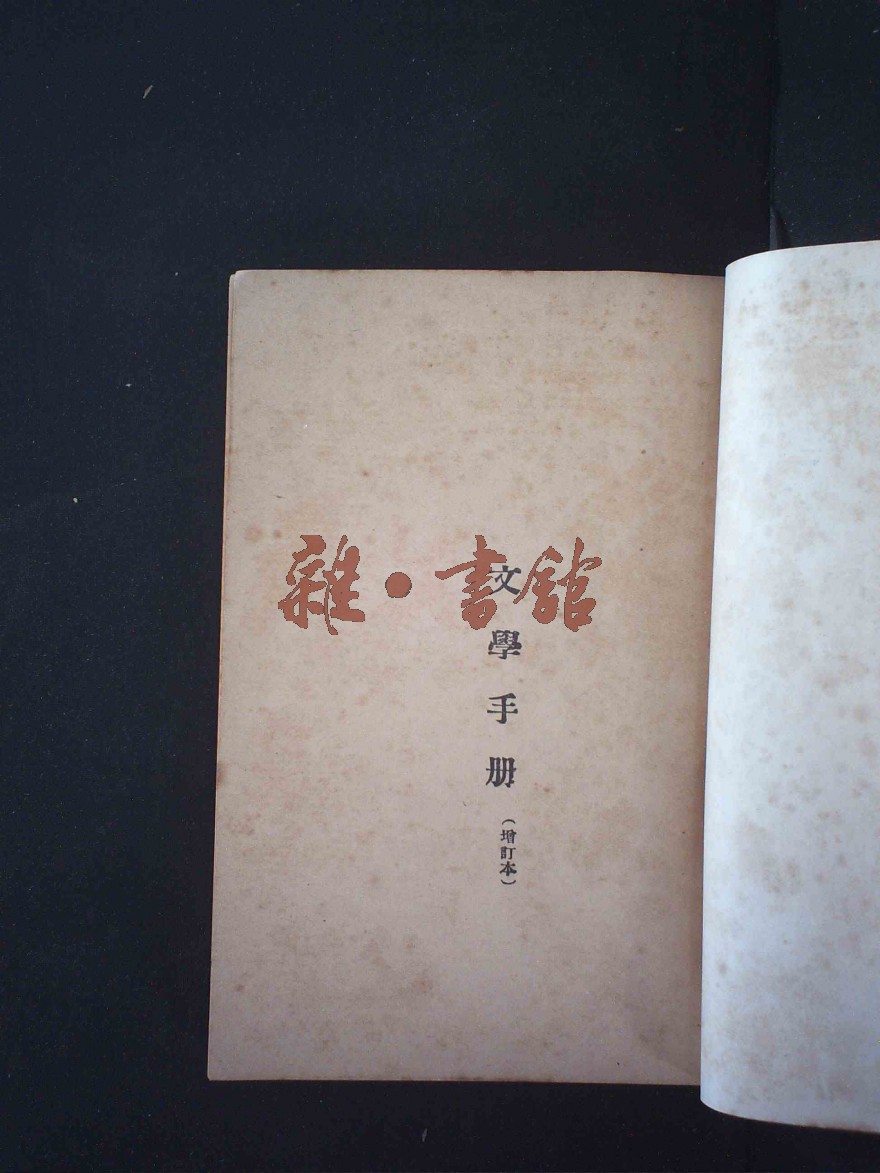 雜·書館
文學手册
（增訂本）